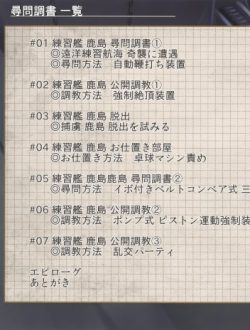 尋問調書 一覧
#01 練習艦 鹿島 尋問調書①
◎遠洋練習航海 奇襲に遭遇
◎尋問方法 自動鞭打ち装置
#02 練習艦 鹿島 公開調教①
◎調教方法 強制絶頂装置
#03 練習艦 鹿島 脱出
◎捕虜 鹿島 脱出を試みる
#04 練習艦 鹿島 お仕置き部屋
◎お仕置き方法 卓球マシン責め
#05 練習艦 鹿島鹿島 尋問調書②
◎尋問方法 イボ付きベルトコンベア式 三
#06 練習艦 鹿島 公開調教②
◎調教方法 ポンプ式 ピストン運動強制装
#07 練習艦 鹿島 公開調教③
◎調教方法 乱交パーティ
エピローグ
あとがき